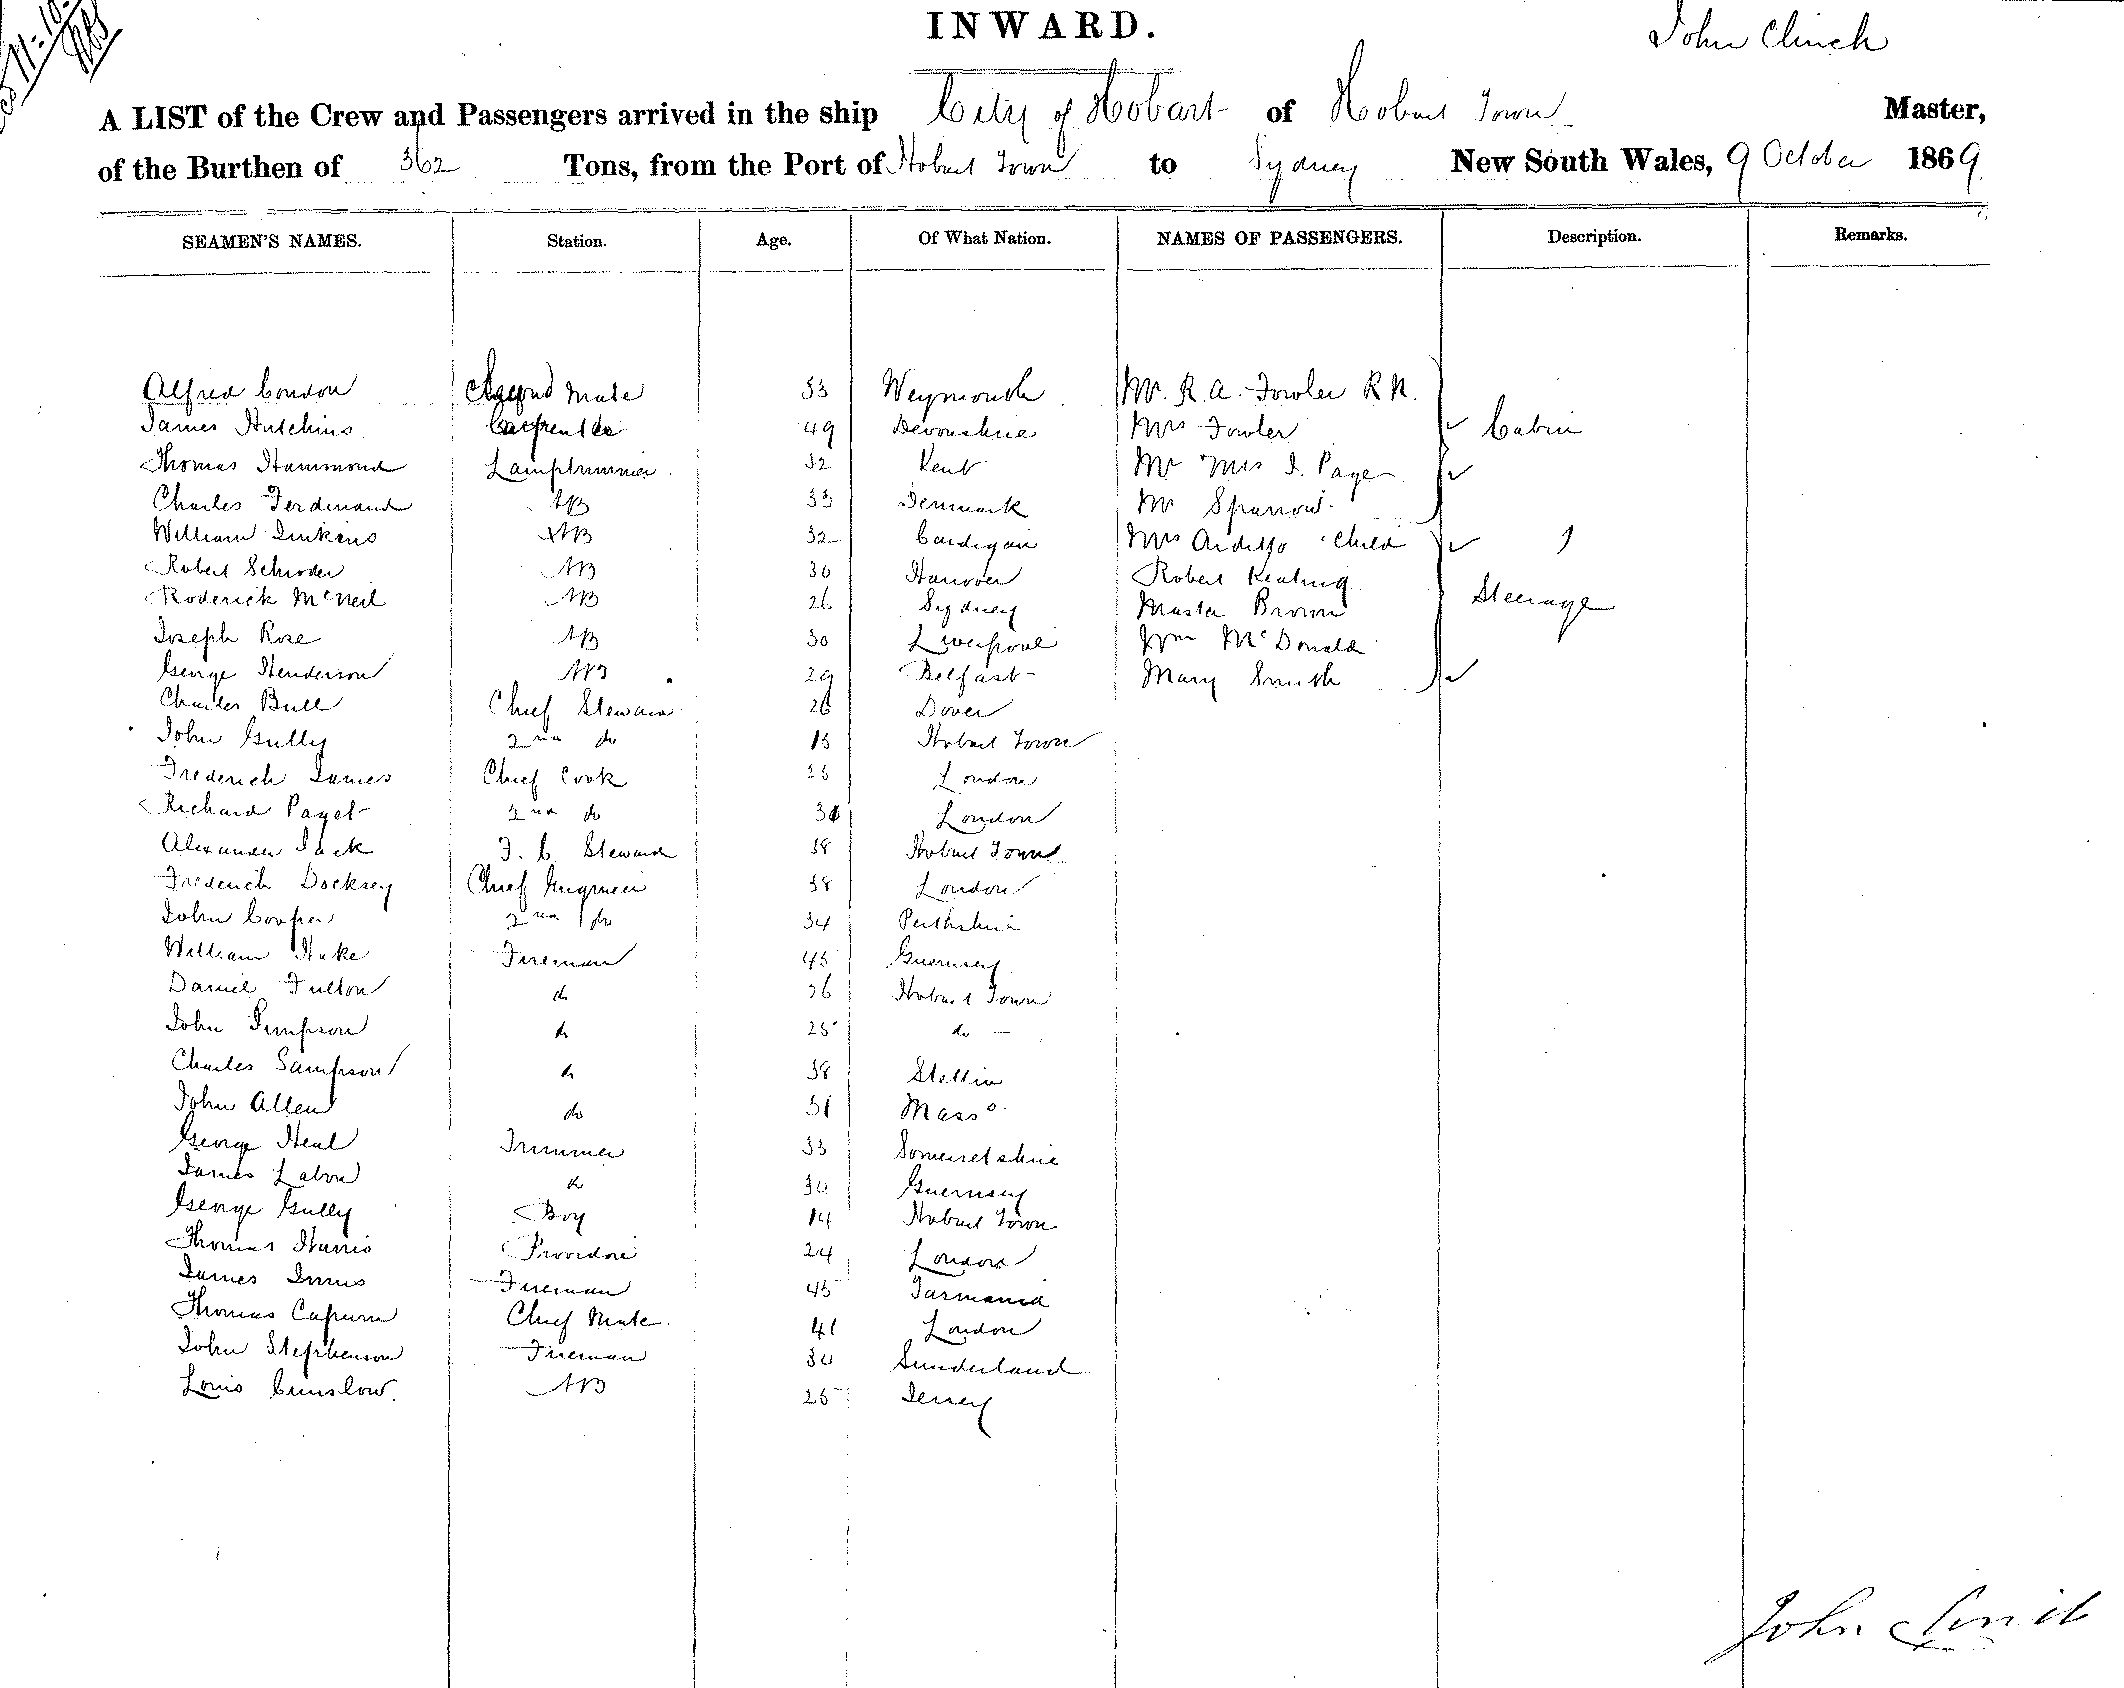 INWARD.
John Clinch
A LIST of the Crew and Passengers arrived in the ship City of Hobart of Hobart Town Master,
of the Burthen of 362 Tons, from the Port of Hobart Town to Sydney New South Wales, 9 October 1869
SEAMEN'S NAMES. Station. Age. Of What Nation. NAMES OF PASSENGERS. Description. Remarks.
Alfred Condon Second Mate 33 Weymouth Mr. R. A. Fowler R N.
James Hutchins Carpenter 49 Devonshire Mrs Fowler Cabin
Thomas Hammond Lamptrimmer 32 Kent Mr Mrs I. Page
Charles Ferdinand AB 33 Denmark Mr Sparrow
William Jinkins AB 32 Cardigan Mrs Child 1
Robert Schroder AB 30 Hanover Robert Keating
Roderick McNeil AB 26 Sydney Master Brown Steerage
Joseph Rose AB 30 Liverpool Wm McDonald
George Henderson AB 29 Belfast Mary Smith
Charles Bull Chief Steward 26 Dover
John Gully 2nd do Hobart Town
Frederich James Chief Cook 25 London
Richard Paget 2nd do London
Alexander Jack F. C Steward 38 Hobart Town
Frederich Docksey Chief Engineer 38 London
John Cooper 2nd do 34 Perthshire
William Hake Fireman 45 Guernsey
Daniel Fulton do 26 Hobart Town
John Simpson do 25 do
Charles Sampson do 38 Stettin
John Allen do 31 Masso
George Heal Trimmer 33 Somersetshire
James Labon do 30 Guernsey
George Gully Boy 14 Hobart Town
Thomas Harris Providore 24 London
James Innis Fireman 45 Tasmania
Thomas Capurn Chief Mate 41 London
John Stephenson Fireman 30 Sunderland
Louis AB 25 Jersey
John